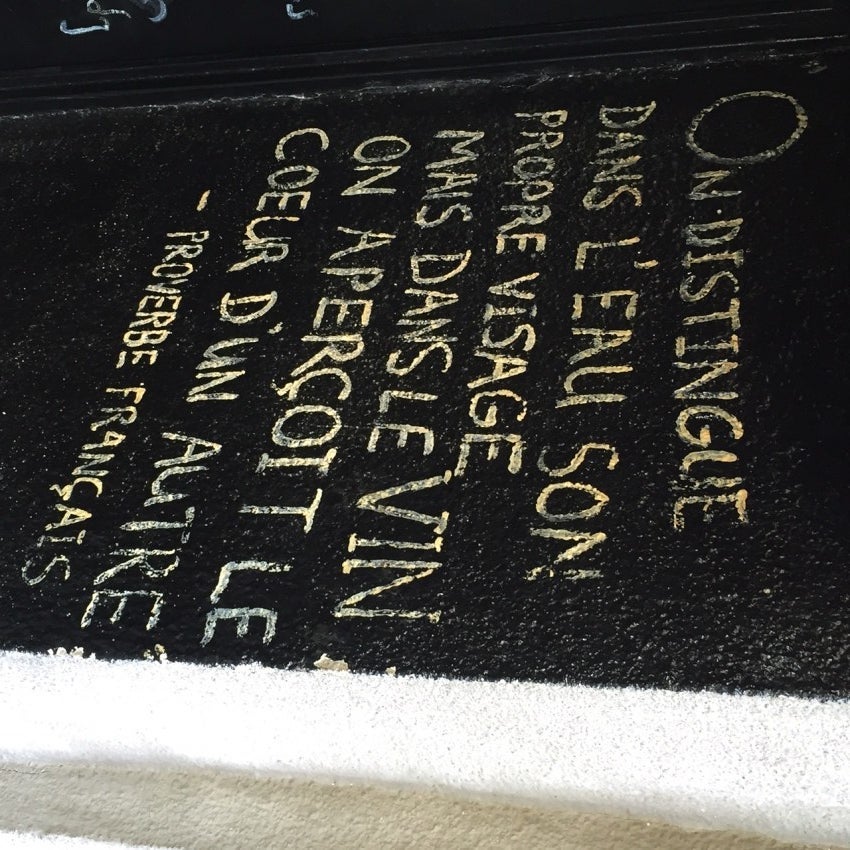 ON DISTINGUE
DANS L'EAU SON
PROPRE VISAGE
MAIS DANS LE VIN
ON APERÇOIT LE
COEUR D'UN AUTRE
- PROVERBE FRANÇAIS